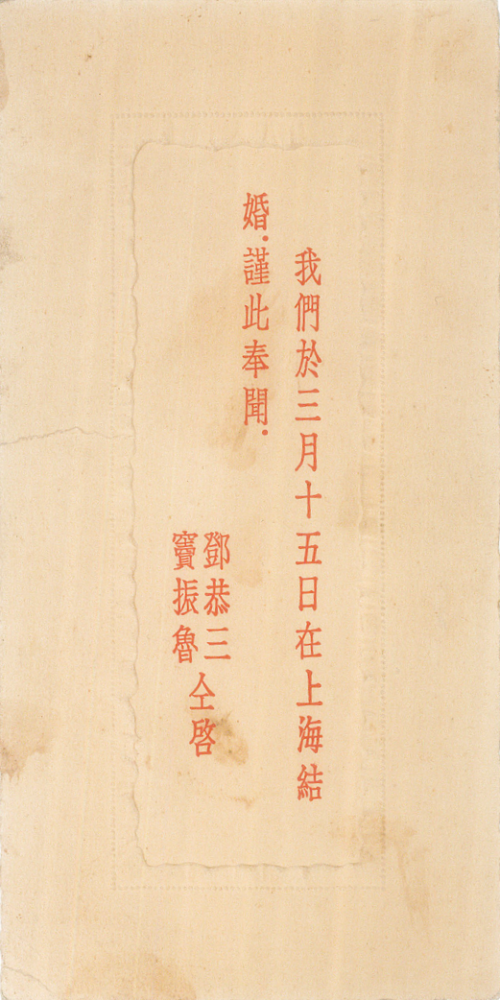 我們於三月十五日在上海結
婚.謹此奉聞.
鄧恭三
竇振魯
仝啓